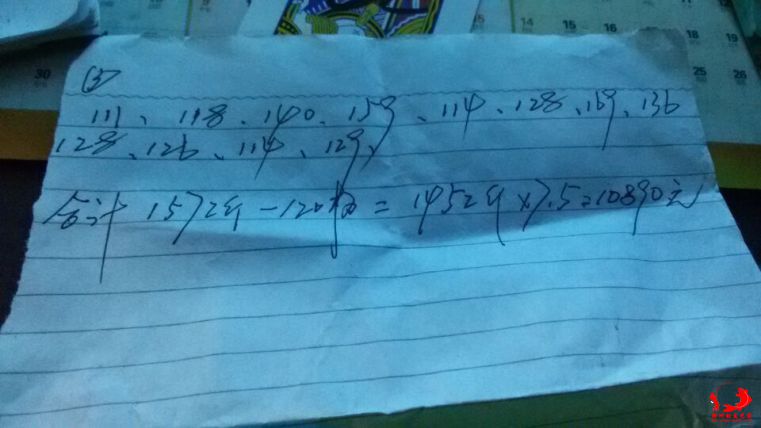 ③
111、118、140、159、114、128、169、136
128、126、114、129、
合计 1572斤-120 = 1452斤×7.5=10890元
30
14
15
16
17
18
25
26